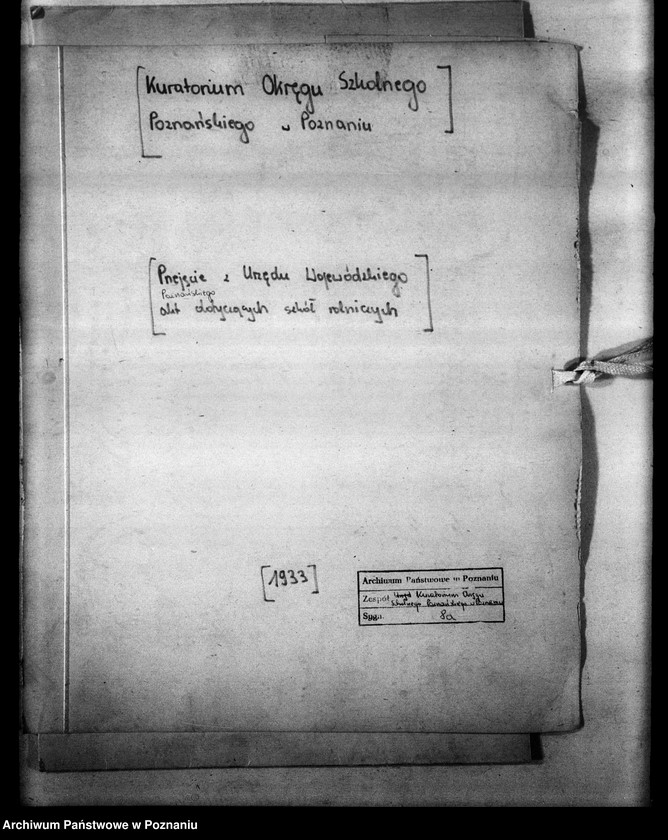 [Kuratorium Okręgu Szkolnego
Poznańskiego w Poznaniu]
[Przejęcie z Urzędu Wojewódzkiego
Poznańskiego
akt dotyczących szkół rolniczych]
[1933]
Archiwum Państwowe w Poznaniu
Zespół Urząd Kuratorium Okręgu
Szkolnego Poznańskiego w Poznaniu
Sygn. 8a
Archiwum Państwowe w Poznaniu